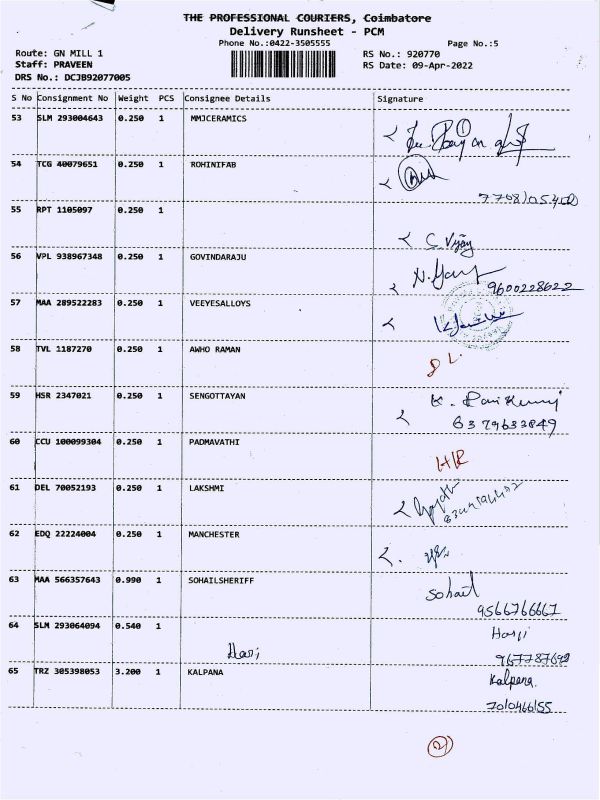 THE PROFESSIONAL COURIERS, Coimbatore
Delivery Runsheet - PCM
Phone No.:0422-3505555 Page No.:5
Route: GN MILL 1 RS No.: 920770
Staff: PRAVEEN RS Date: 09-Apr-2022
DRS No.: DCJB92077005
S No Consignment No Weight PCS Consignee Details Signature
53 SLM 293004643 0.250 1 MMJCERAMICS
54 TCG 40079651 0.250 1 ROHINIFAB
55 RPT 1105097 0.250 1
C. Vijay
56 VPL 938967348 0.250 1 GOVINDARAJU
9600228622
57 MAA 289522283 0.250 1 VEEYESALLOYS
58 TVL 1187270 0.250 1 AWHO RAMAN
DL
59 HSR 2347021 0.250 1 SENGOTTAYAN
6379633849
60 CCU 100099304 0.250 1 PADMAVATHI
HR
61 DEL 70052193 0.250 1 LAKSHMI
62 EDQ 22224004 0.250 1 MANCHESTER
63 MAA 566357643 0.990 1 SOHAILSHERIFF
Sohail
9566766667
64 SLM 293064094 0.540 1
Hari
65 TRZ 305398053 3.200 1 KALPANA Kalpana
7010466155